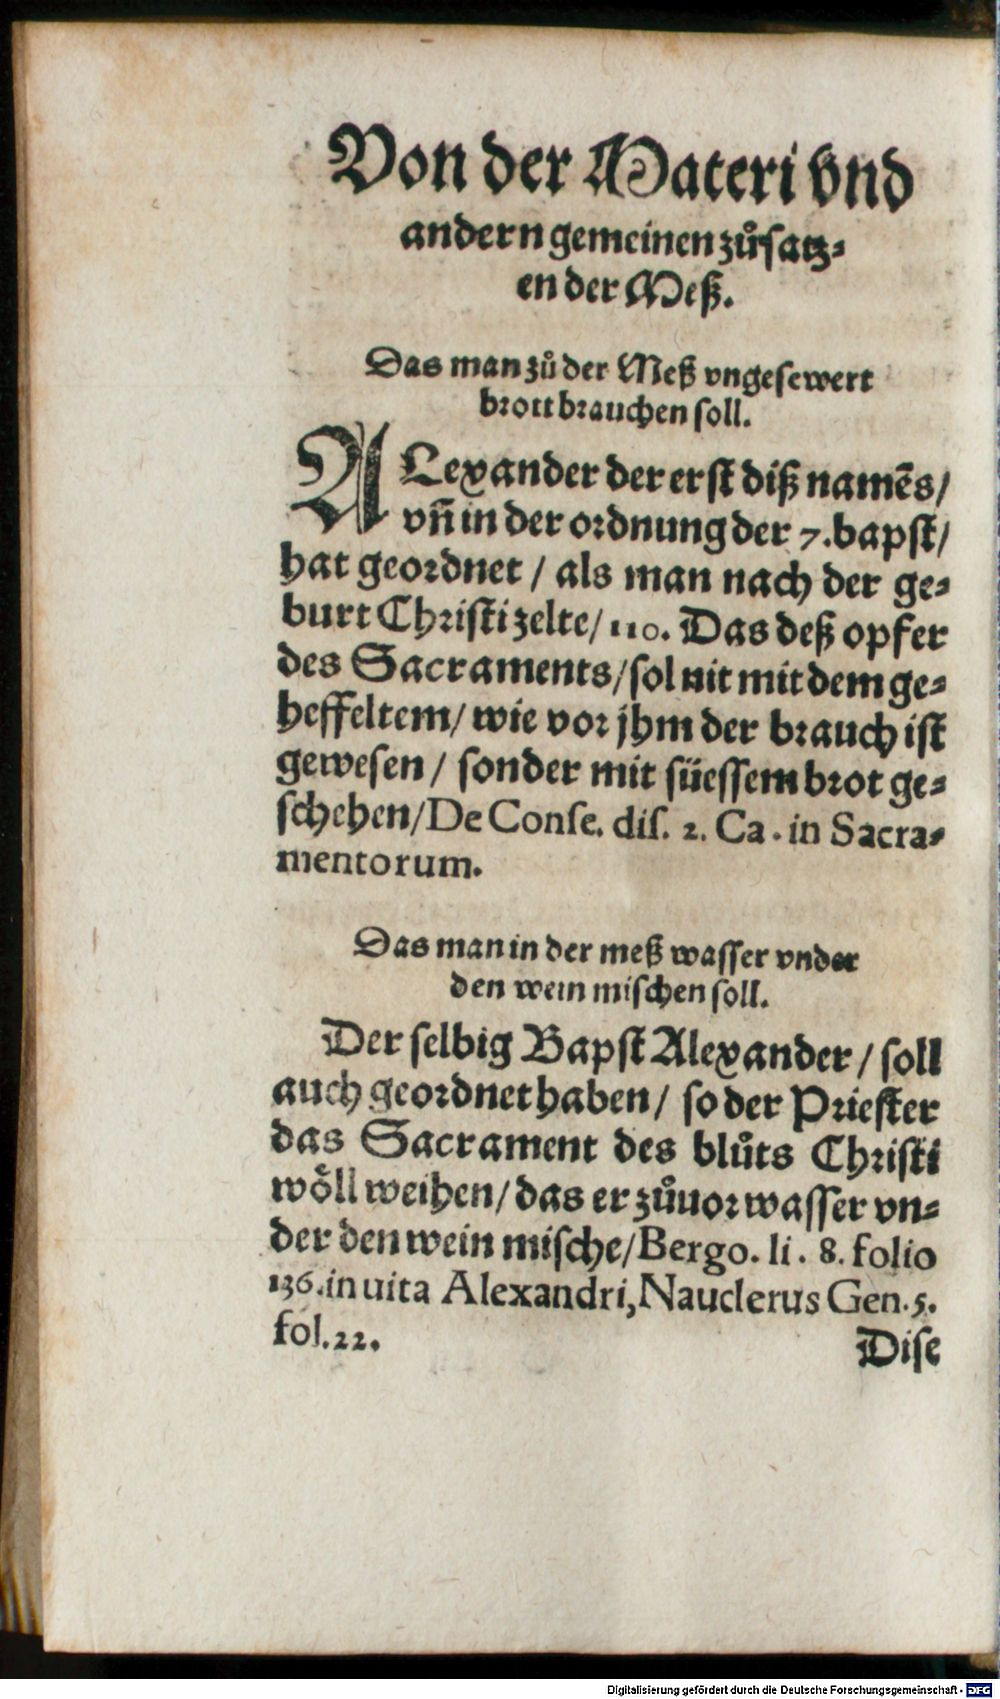 Von der Materi vnd
andern gemeinen zůsatz⸗
en der Meß.
Das man zů der Meß vngesewert
brott brauchen soll.
ALexander der erst diß namēs/
vn̄ in der ordnung der 7. bapst/
hat geordnet / als man nach der ge⸗
burt Christi zelte/ 110. Das deß opfer
des Sacraments/ sol nit mit dem ge⸗
heffeltem/ wie vor jhm der brauch ist
gewesen / sonder mit süessem brot ge⸗
schehen/ De Conse. dis. 2. Ca. in Sacra⸗
mentorum.
Das man in der meß wasser vnder
den wein mischen soll.
Der selbig Bapst Alexander / soll
auch geordnet haben/ so der Priester
das Sacrament des blůts Christi
wöll weihen/ das er zůuor wasser vn⸗
der den wein mische/ Bergo. li. 8. folio
136. in uita Alexandri, Nauclerus Gen. 5.
fol. 22.
Dise
Digitalisierung gefördert durch die Deutsche Forschungsgemeinschaft - DFG